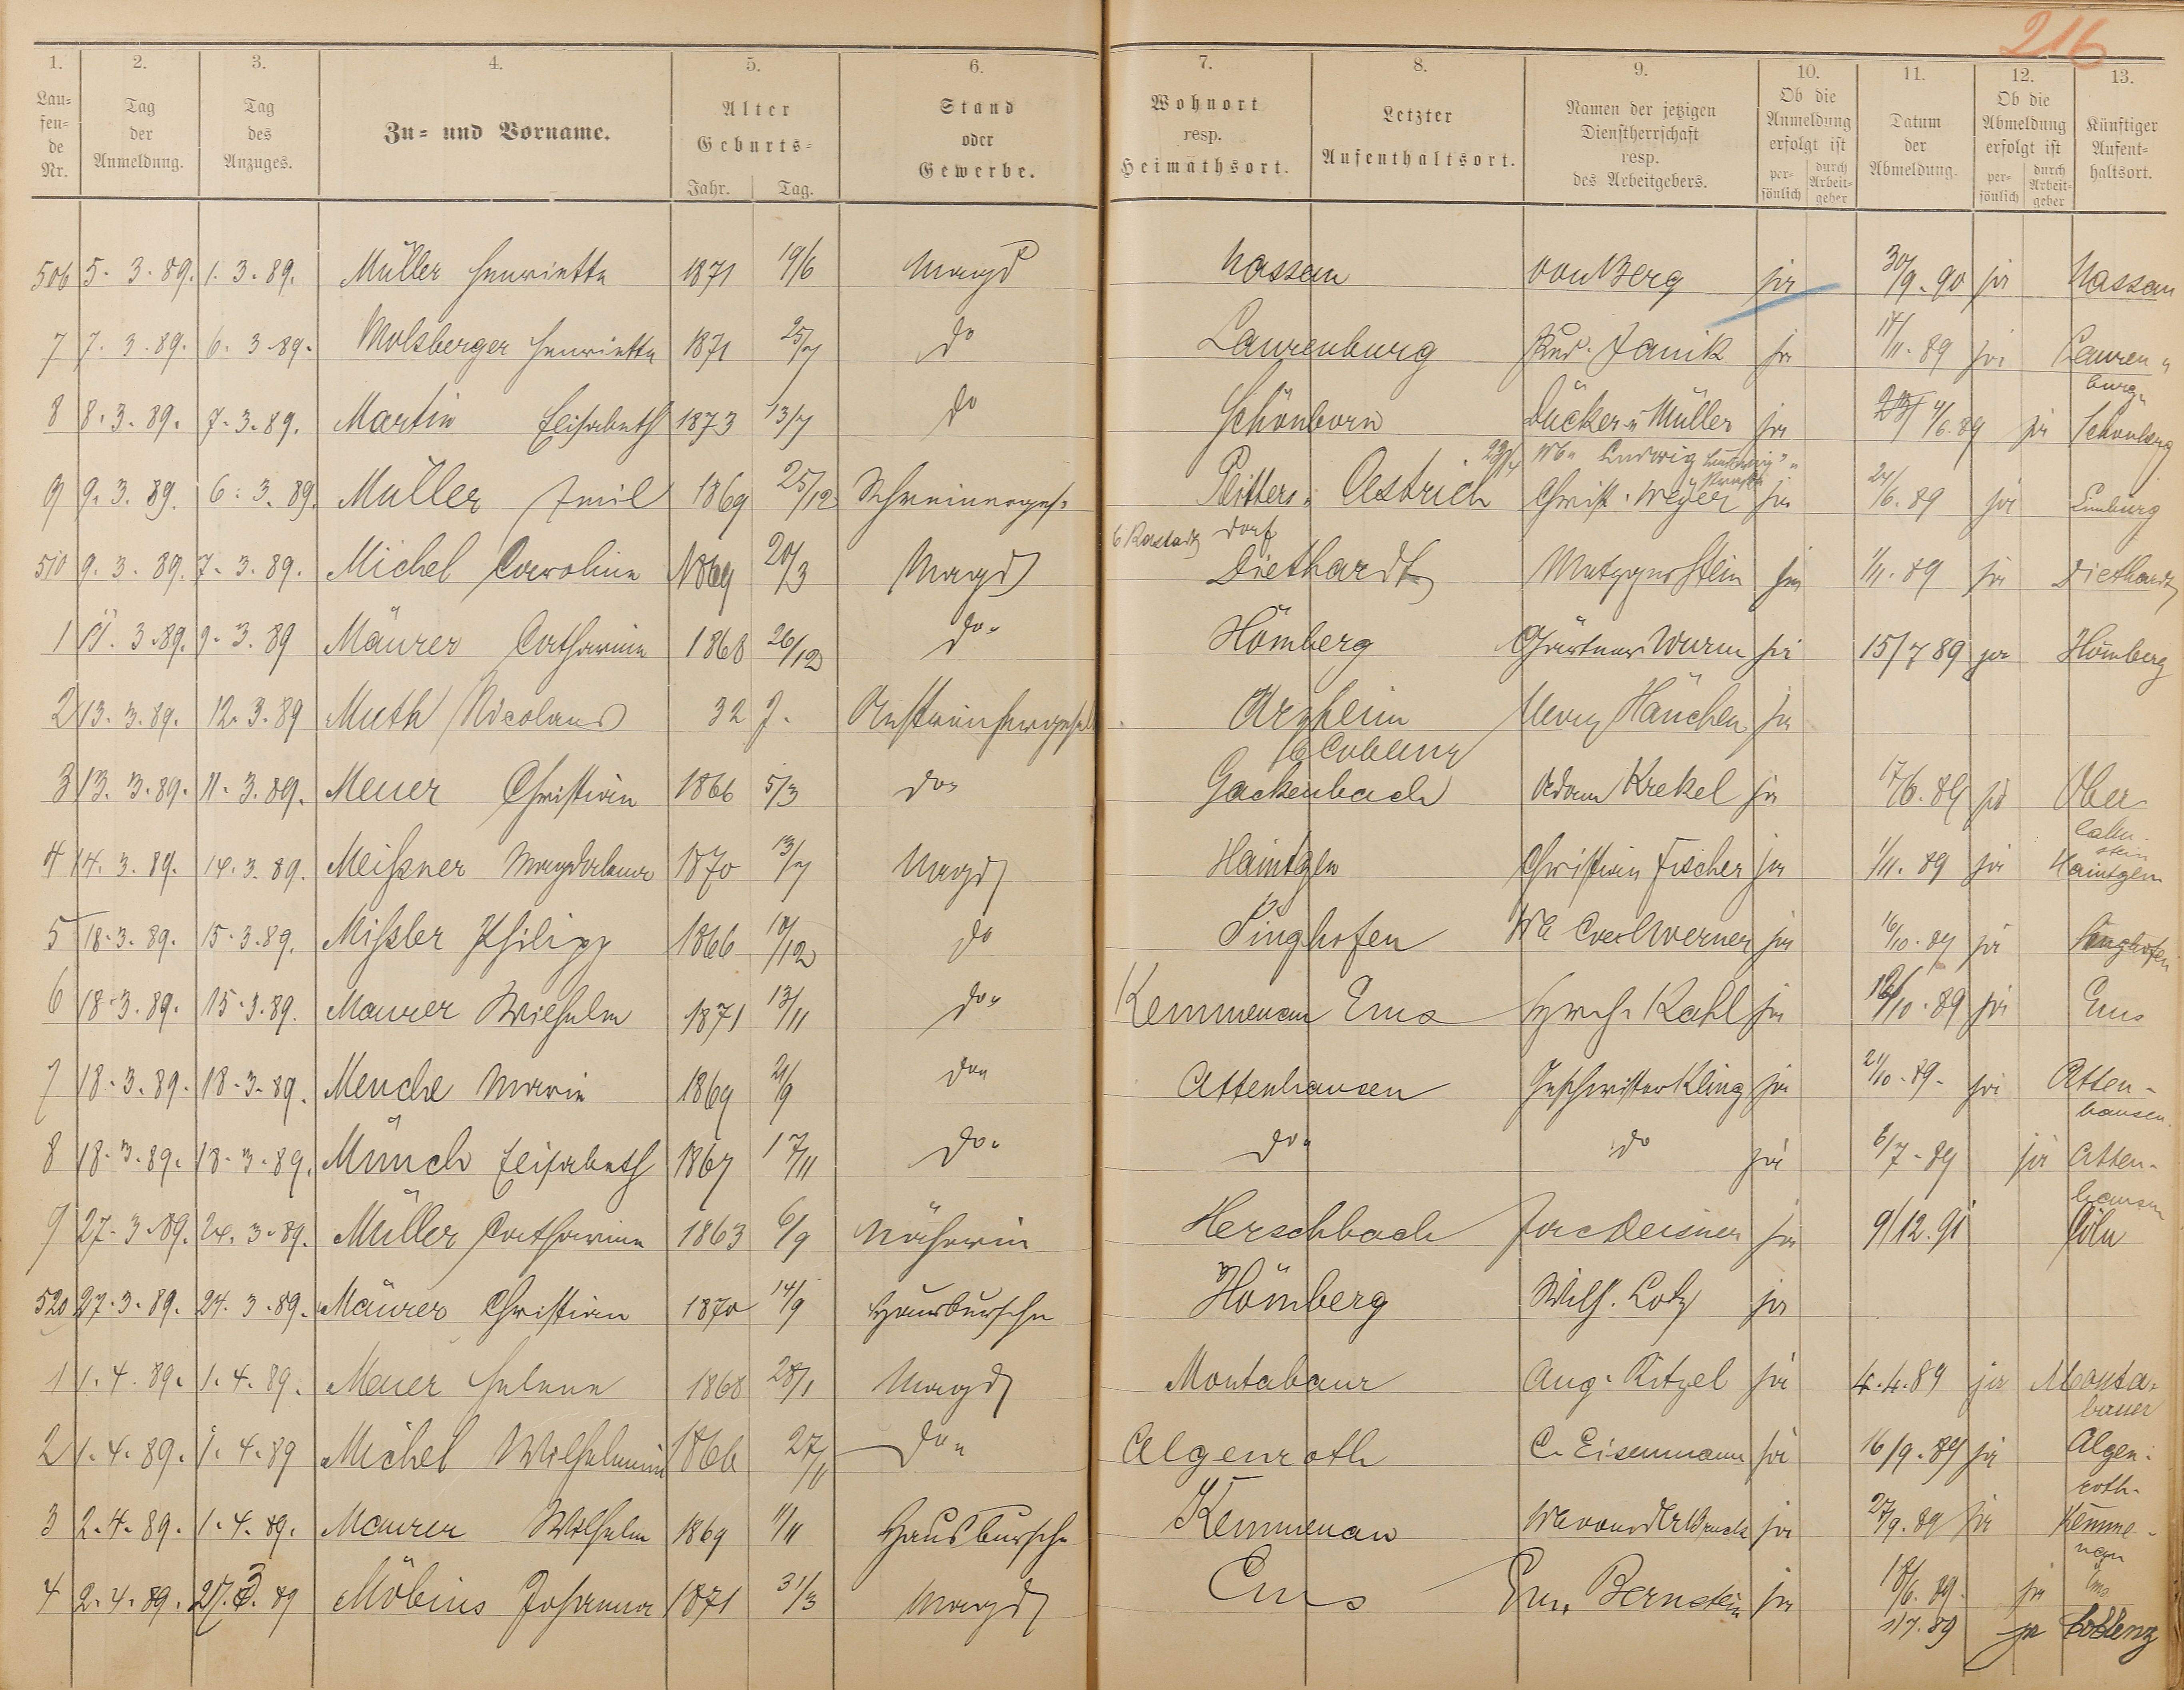 216
1. 2. 3. 4. 5. 6. 7. 8. 9. 10. 11. 12. 13.
Laufende Nr. Tag der Anmeldung. Tag des Anzuges. Zu- und Vorname. Alter Geburts- Jahr. Tag. Stand oder Gewerbe. Wohnort resp. Heimathsort. Letzter Aufenthaltsort. Namen der jetzigen Dienstherrschaft resp. des Arbeitgebers. Ob die Anmeldung erfolgt ist persönlich durch Arbeitgeber Datum der Abmeldung. Ob die Abmeldung erfolgt ist persönlich durch Arbeitgeber Künftiger Aufenthaltsort.
506 5. 3. 89. 1. 3. 89. Müller Henriette 1871 19/6 Magd Nassau von Berg ja 30/9. 90 ja Nassau
7 7. 3. 89. 6. 3. 89. Molsberger Henriette 1871 25/7 do Laurenburg Janik ja 14/11. 89 ja Lauren-
burg
8 8. 3. 89. 7. 3. 89. Martin Elisabeth 1873 13/7 do Schönborn Dücker u Müller ja 4/6. 89 ja Schönborn
We. Ludwig
9 9. 3. 89. 6. 3. 89. Müller Emil 1869 25/12 Schreinerges. Ritters- Oestrich Christ. Meyer ja 24/6. 89 ja Limburg
b Rastadt dorf
510 9. 3. 89. 7. 3. 89. Michel Caroline 1869 20/3 Magd Diethardt Metzger Stein ja 1/11. 89 ja Diethardt
1 11. 3. 89. 9. 3. 89 Mäurer Catharine 1868 26/12 do. Hömberg Gärtner Wurm ja 15/7 89 ja Hömberg
2 13. 3. 89. 12. 3. 89 Muth Nicolaus 32 J. Anstreichergesell Arzheim Häuchen ja
b Coblenz
3 13. 3. 89. 11. 3. 89. Meuer Christian 1866 5/3 do. Gackenbach Adam Krekel ja 17/6. 89 ja Ober-
lahn-
stein
4 14. 3. 89. 14. 3. 89. Meißner Magdalena 1870 13/7 Magd Haintgen Christian Fischer ja 1/11. 89 ja Haintgen
5 18. 3. 89. 15. 3. 89. Mißler Philipp 1866 10/12 do Singhofen We Carl Werner ja 16/10. 89 ja Singhofen
6 18. 3. 89. 15. 3. 89. Maurer Wilhelm 1871 13/11 do. Kemmenau Ems Kahl ja 16/10. 89 ja Ems
7 18. 3. 89. 18. 3. 89. Menche Marie 1869 2/9 do. Attenhausen Geschwister Kling ja 21/10. 89. ja Atten-
hausen.
8 18. 3. 89. 18. 3. 89. Münch Elisabeth 1867 17/11 do. do. do ja 6/7. 89 ja Atten-
hausen
9 27. 3. 89. 24. 3. 89. Müller Catharine 1863 6/9 Näherin Herschbach Jac Deisner ja 9/12. 91 Cöln
520 27. 3. 89. 24. 3. 89. Mäurer Christian 1870 14/9 Hausbursche Hömberg Wilh. Lotz ja
1 1. 4. 89. 1. 4. 89. Meuer Helene 1868 28/1 Magd Montabaur Aug. Ritzel ja 4. 4. 89 ja Monta-
bauer
2 1. 4. 89. 1. 4. 89 Michel Wilhelmine 1866 27/11 do. Algenroth C. Eisenmann ja 16/9. 89 ja Algen-
roth.
3 2. 4. 89. 1. 4. 89. Maurer Wilhelm 1869 1/11 Hausbursche Kemmenau We ja 27/9. 89 ja Kemme-
nau
4 2. 4. 89. 27. 3. 89 Möbius Johanna 1871 31/3 Magd Ems Em. Bernstein ja 18/6. 89. ja Ems
1/7. 89 ja Coblenz